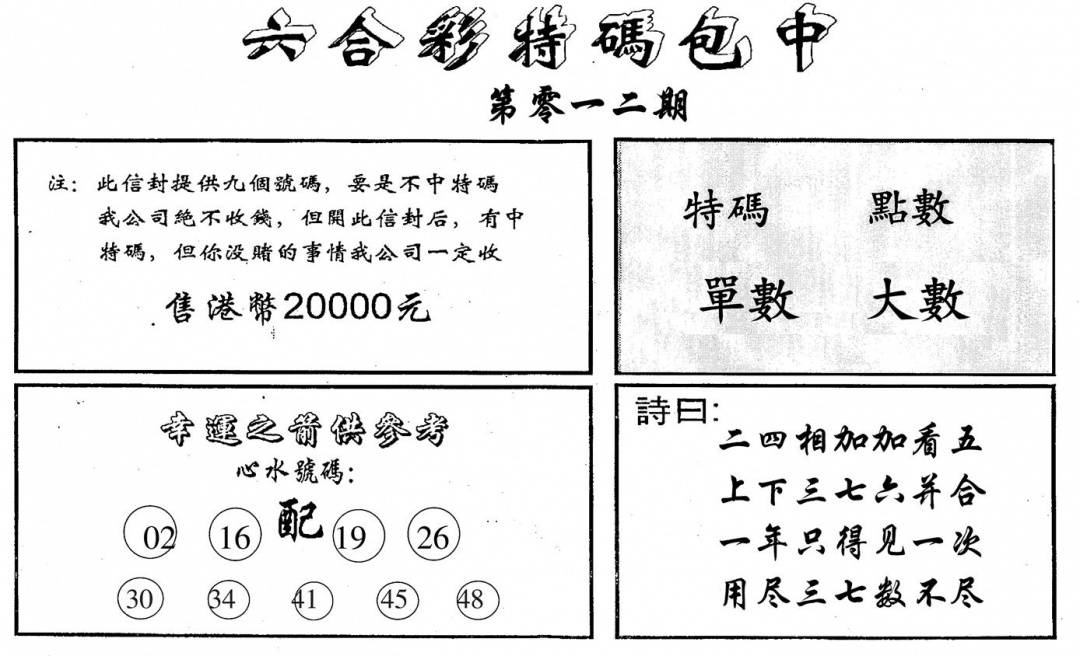 六合彩特碼包中
第零一二期
注：此信封提供九個號碼，要是不中特碼
我公司絕不收錢，但開此信封后，有中
特碼，但你没賭的事情我公司一定收
售港幣20000元
特碼 點數
單數 大數
幸運之箭供參考
心水號碼：
配
02 16 19 26
30 34 41 45 48
詩曰：
二四相加加看五
上下三七六并合
一年只得见一次
用尽三七数不尽